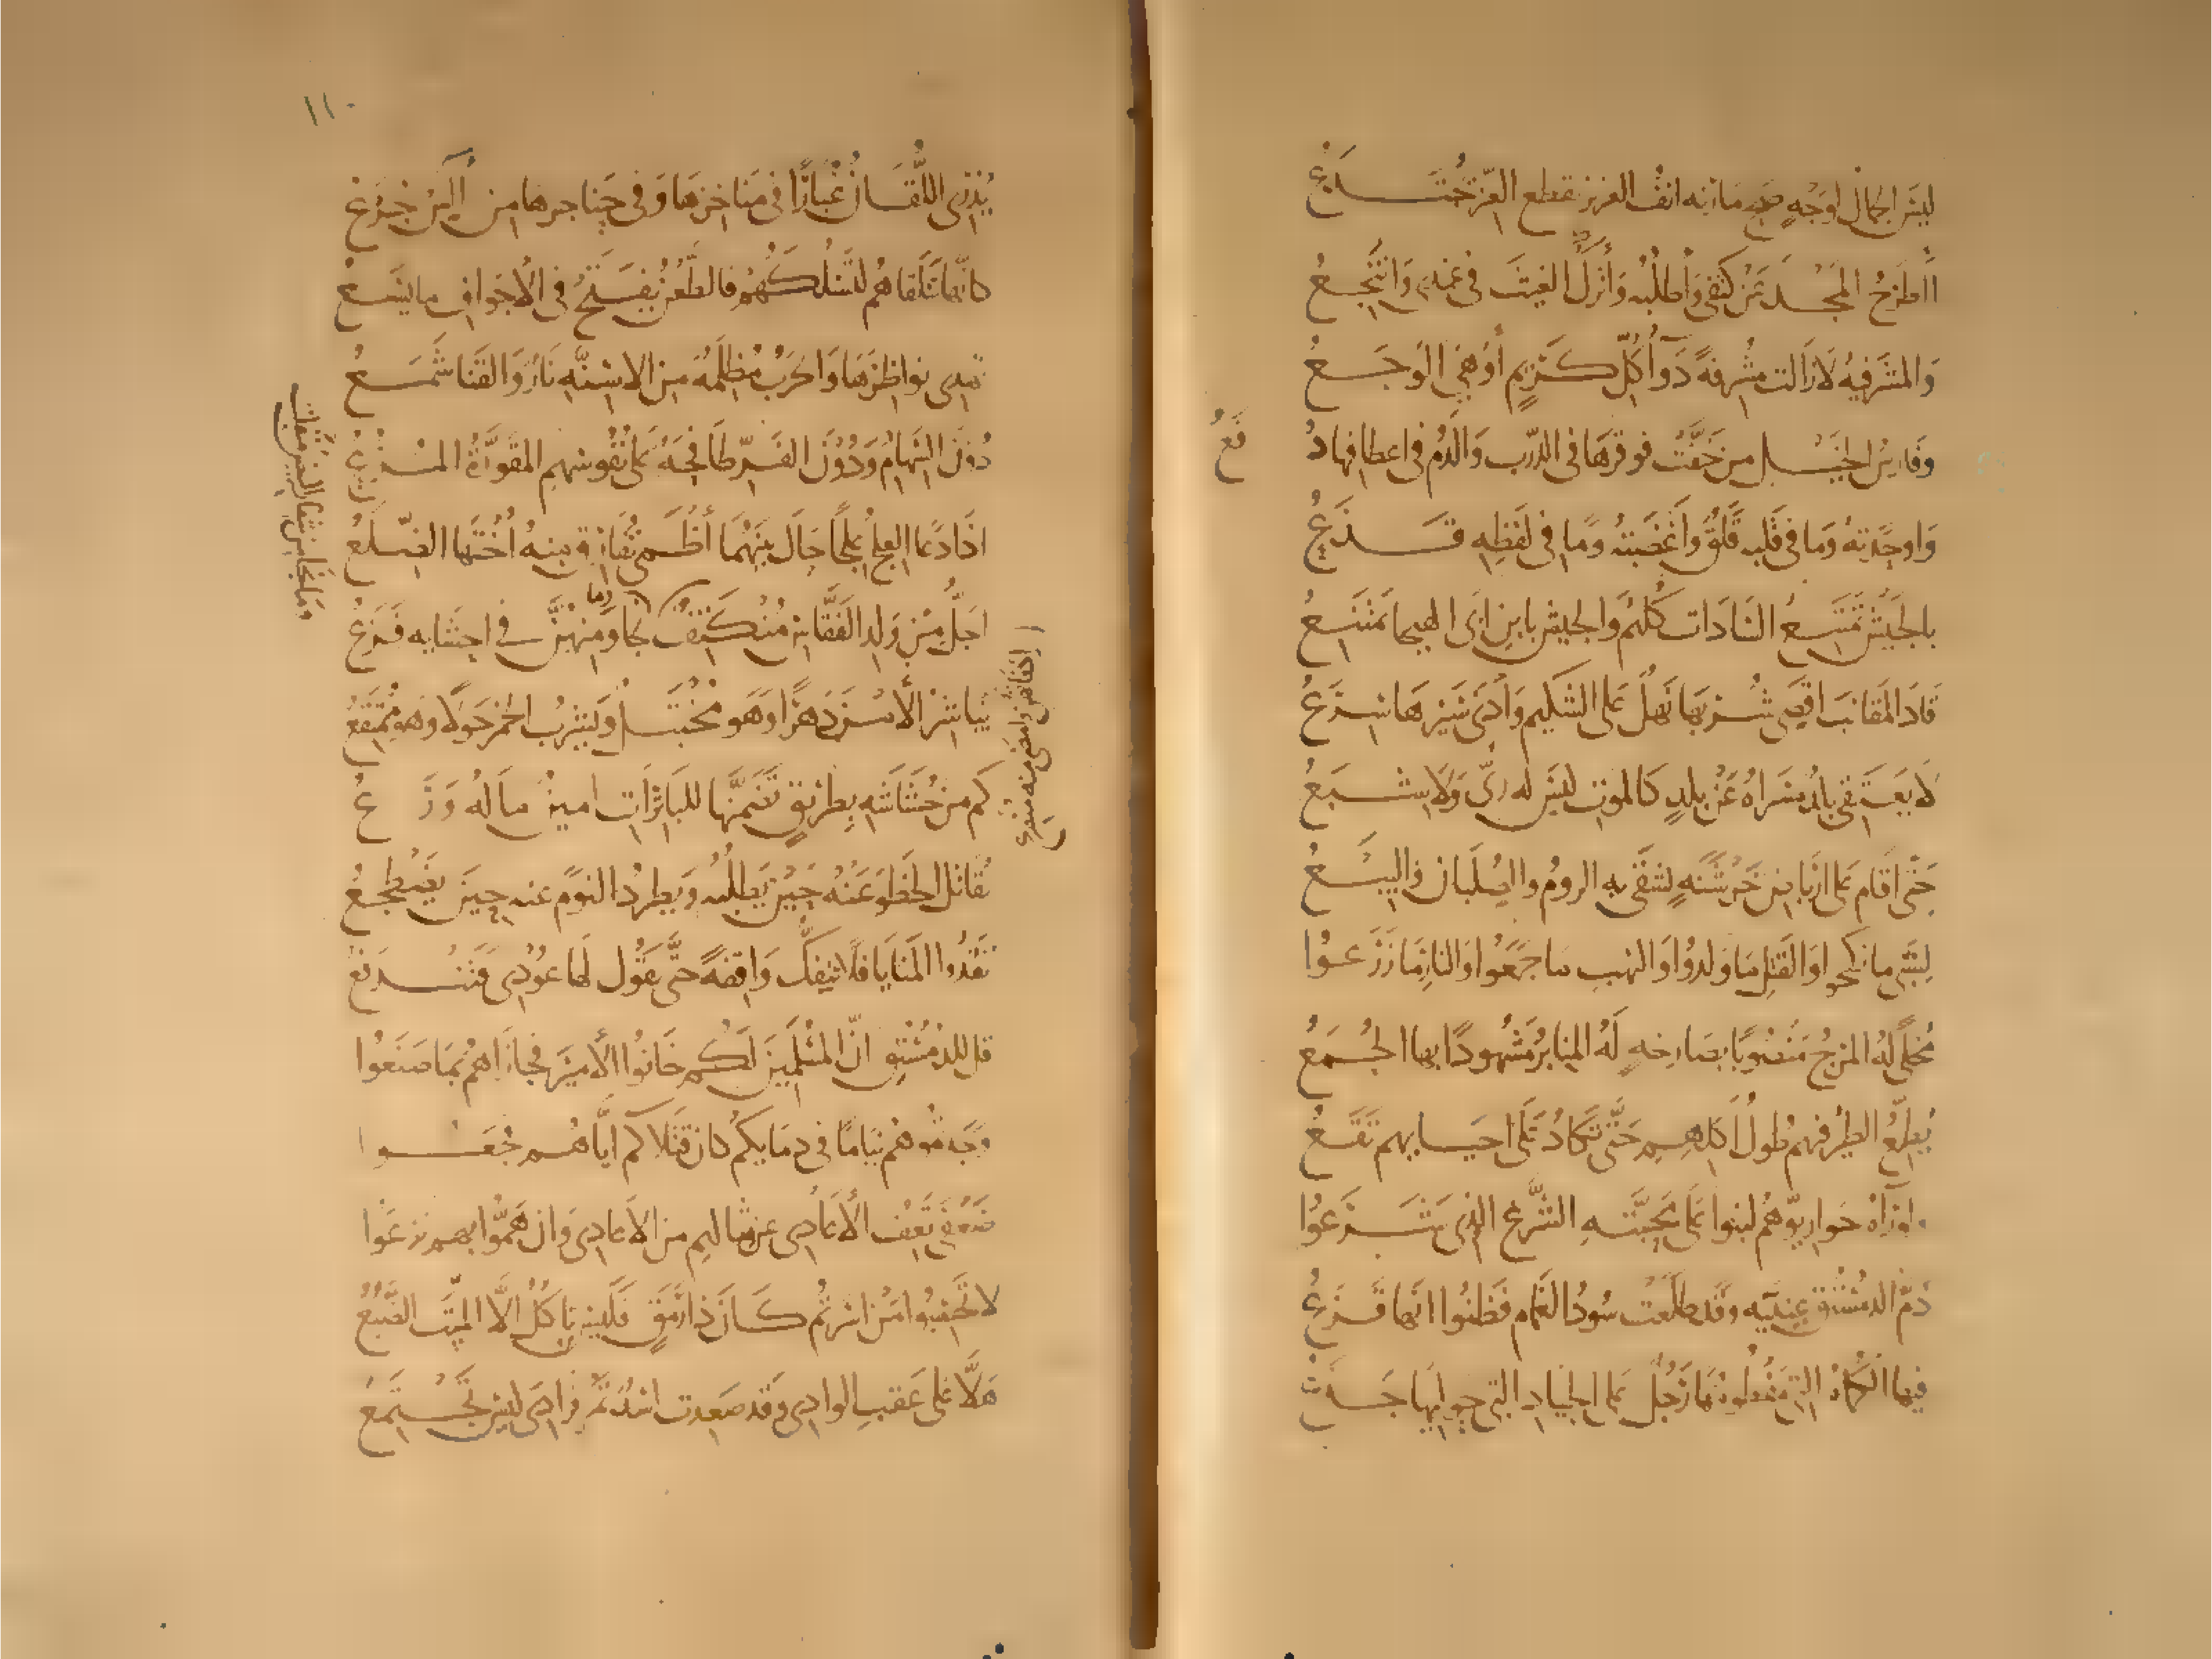 ليس الجمال لوجه صح مارنه انف العزيز بقطع العز يجتدع
أأطرح المجد عن كتفي وأطلبه وأترك الغيث في غمدي وانتجع
والمشرفية لا زالت مشرفة دواء كل كريم أو هي الوجع
وفارس الخيل من خفت فوقرها في الدرب والدم في اعطافها دفع
واوحدته وما في قلبه قلق وأغضبته وما في لفظه قذع
بالجيش تمتنع السادات كلهم والجيش بابن ابي الهيجا يمتنع
قاد المقانب اقصى شربها نهل على الشكيم وأدنى سيرها سرع
لا يعتقي بلد مسراه عن بلد كالموت ليس له ري ولا شبع
حتى اقام على ارباض خرشنة تشقى به الروم والصلبان والبيع
للسبي ما نكحوا والقتل ما ولدوا والنهب ما جمعوا والنار ما زرعوا
مخلى له المرج منصوبا بصارخة له المنابر مشهودا بها الجمع
يطمع الطير فيهم طول أكلهم حتى تكاد على احيايهم تقع
ولو رآه حواريوهم لبنوا على محبته الشرع الذي شرعوا
ذم الدمستق عينيه وقد طلعت سود الغمام فظنوا انها قزع
فيها الكماة التي مفطومها رجل على الجياد التي حوليها جذع
١١٠
يذري اللقان غبارا في مناخرها وفي حناجرها من آلس جرع
كأنها تتلقاهم لتسلكهم فالطعن يفتح في الأجواف ما يسع
تهدي نواظرها والحرب مظلمة من الاسنة نار والقنا شمع
دون السهام ودون القر طافحة على نفوسهم المقورة المزع
اذا دعا العلج علجا حال بينهما أظمى تفارق منه أختها الضلع
اجل من ولد الفقاس منكتف اذ فاتهن وامضى منه منصرع
وما نجا من شفار البيض منفلت نجا ومنهن في احشايه فزع
يباشر الأمن دهرا وهو مختبل ويشرب الخمر حولا وهو ممتقع
كم من حشاشة بطريق تضمنها للباترات امين ما له ورع
يقاتل الخطو عنه حين يطلبه ويطرد النوم عنه حين يضطجع
تغدوا المنايا فلا تنفك واقفة حتى يقول لها عودي فتندفع
قل للدمستق ان المسلمين لكم خانوا الأمير فجازاهم بما صنعوا
وجدتموهم نياما في دمايكم كان قتلاكم اياهم فجعوا
ضعفى تعف الأعادي عن مثالهم من الاعادي وان هموا بهم نزعوا
لا تحسبوا من اسرتم كان ذا رمق فليس ياكل الا الميت الضبع
هلا على عقب الوادي وقد صعدت اسد تمر فرادى ليس تجتمع